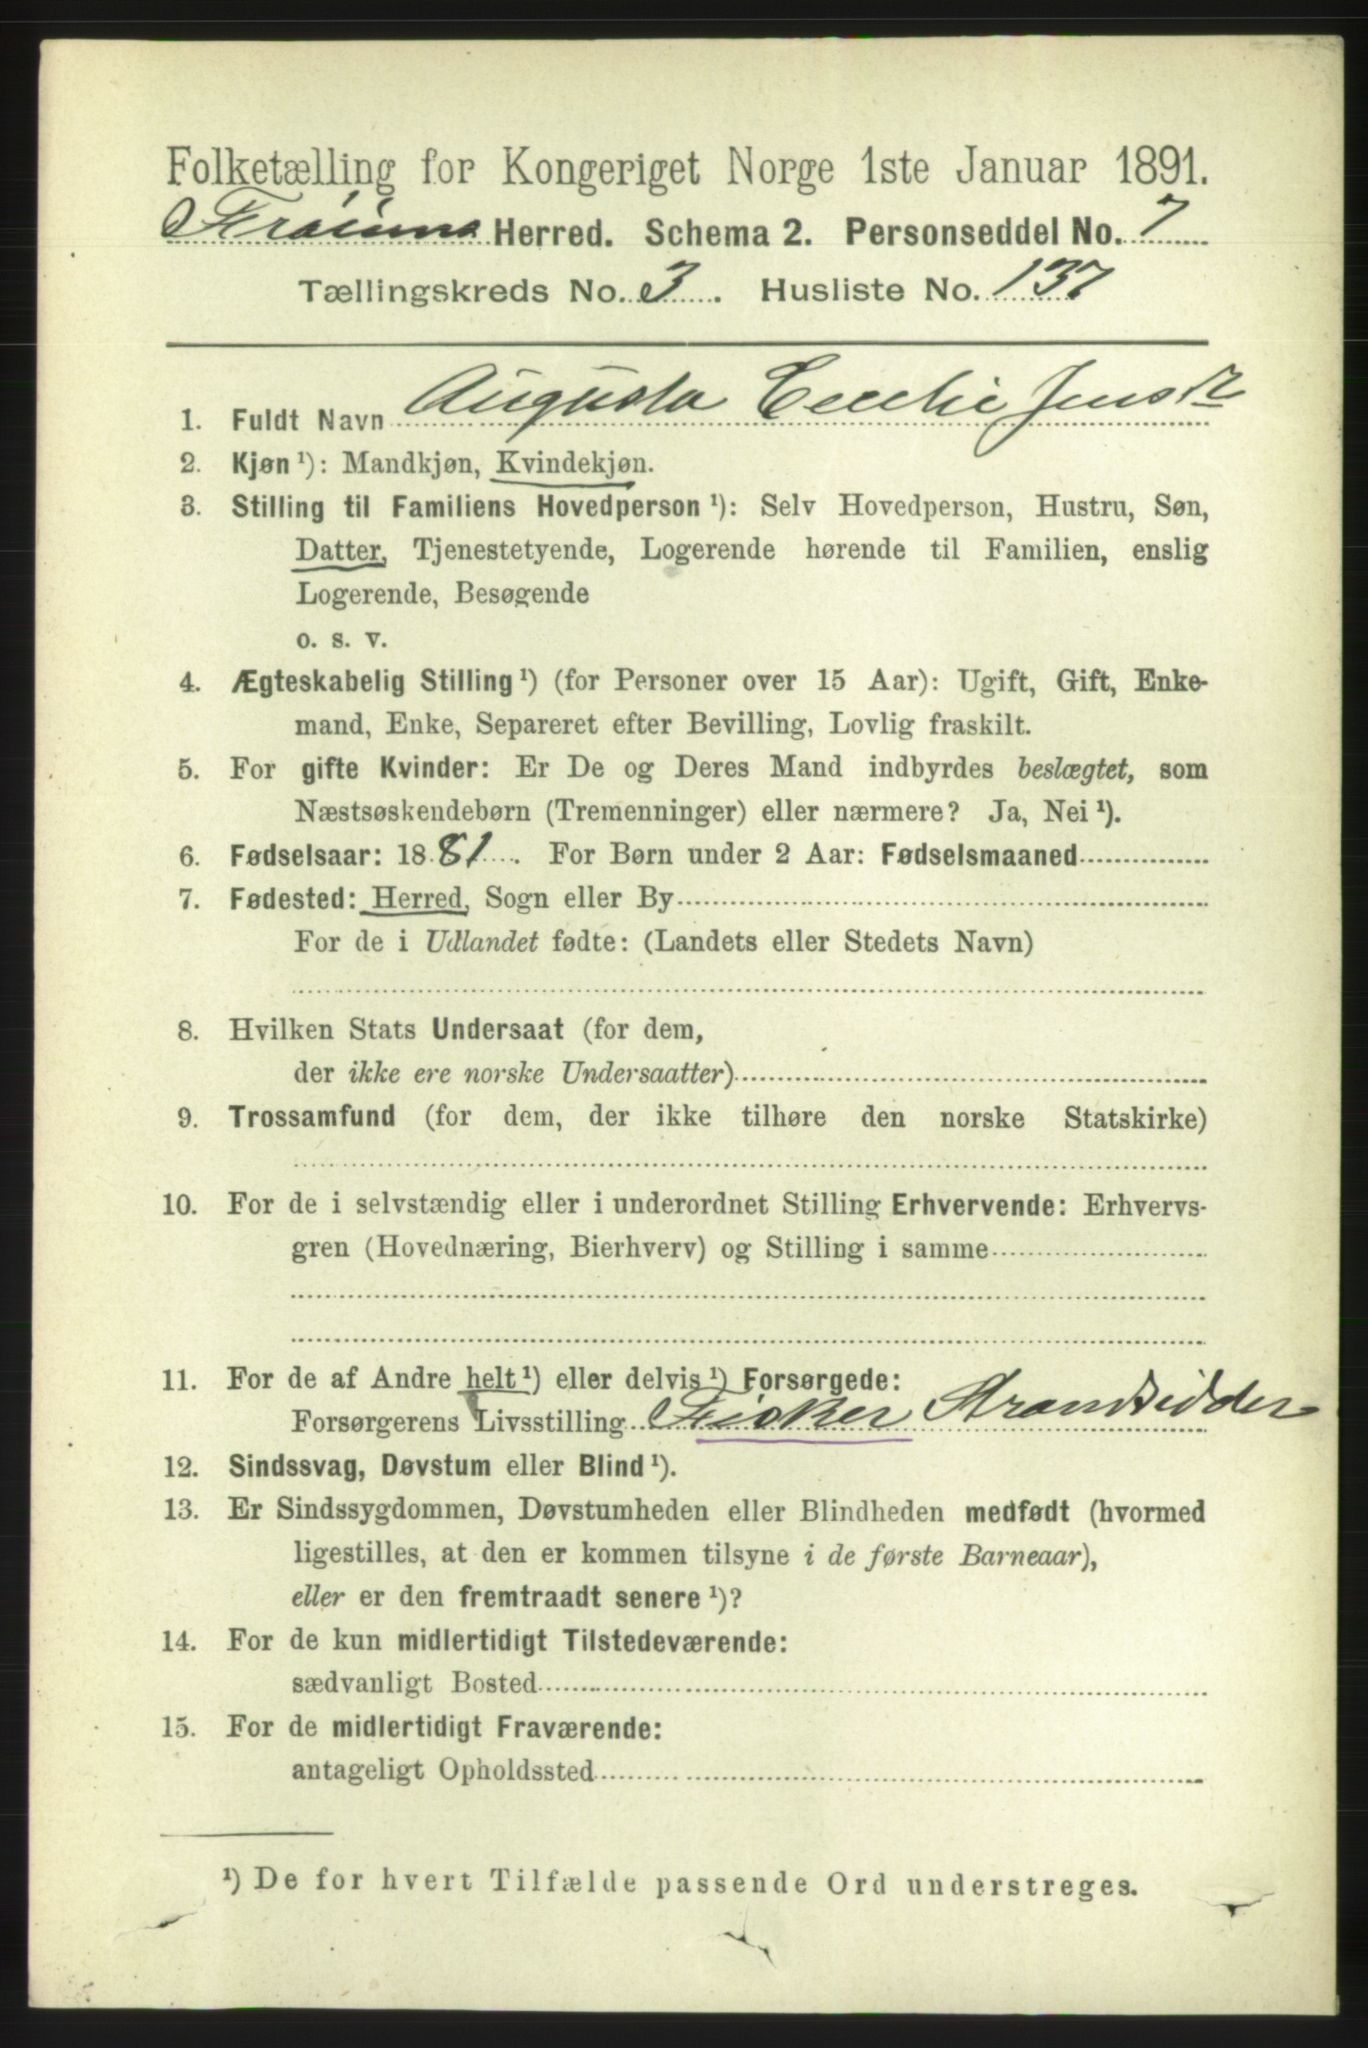 Folketælling for Kongeriget Norge 1ste Januar 1891.
Herred. Schema 2. Personseddel No. 7
Tællingskreds No. 3. Husliste No. 137
1. Fuldt Navn Augusta Cecelie Jensdr
2. Kjøn ¹): Mandkjøn, Kvindekjøn.
3. Stilling til Familiens Hovedperson ¹): Selv Hovedperson, Hustru, Søn,
Datter, Tjenestetyende, Logerende hørende til Familien, enslig
Logerende, Besøgende
o. s. v.
4. Ægteskabelig Stilling ¹) (for Personer over 15 Aar): Ugift, Gift, Enke-
mand, Enke, Separeret efter Bevilling, Lovlig fraskilt.
5. For gifte Kvinder: Er De og Deres Mand indbyrdes beslægtet, som
Næstsøskendebørn (Tremenninger) eller nærmere? Ja, Nei ¹).
6. Fødselsaar: 1881. For Børn under 2 Aar: Fødselsmaaned
7. Fødested: Herred, Sogn eller By
For de i Udlandet fødte: (Landets eller Stedets Navn)
8. Hvilken Stats Undersaat (for dem,
der ikke ere norske Undersaatter)
9. Trossamfund (for dem, der ikke tilhøre den norske Statskirke)
10. For de i selvstændig eller i underordnet Stilling Erhvervende: Erhvervs-
gren (Hovednæring, Bierhverv) og Stilling i samme
11. For de af Andre helt ¹) eller delvis ¹) Forsørgede:
Forsørgerens Livsstilling Fisker Strandsidder
12. Sindssvag, Døvstum eller Blind ¹).
13. Er Sindssygdommen, Døvstumheden eller Blindheden medfødt (hvormed
ligestilles, at den er kommen tilsyne i de første Barneaar),
eller er den fremtraadt senere ¹)?
14. For de kun midlertidigt Tilstedeværende:
sædvanligt Bosted
15. For de midlertidigt Fraværende:
antageligt Opholdssted
¹) De for hvert Tilfælde passende Ord understreges.